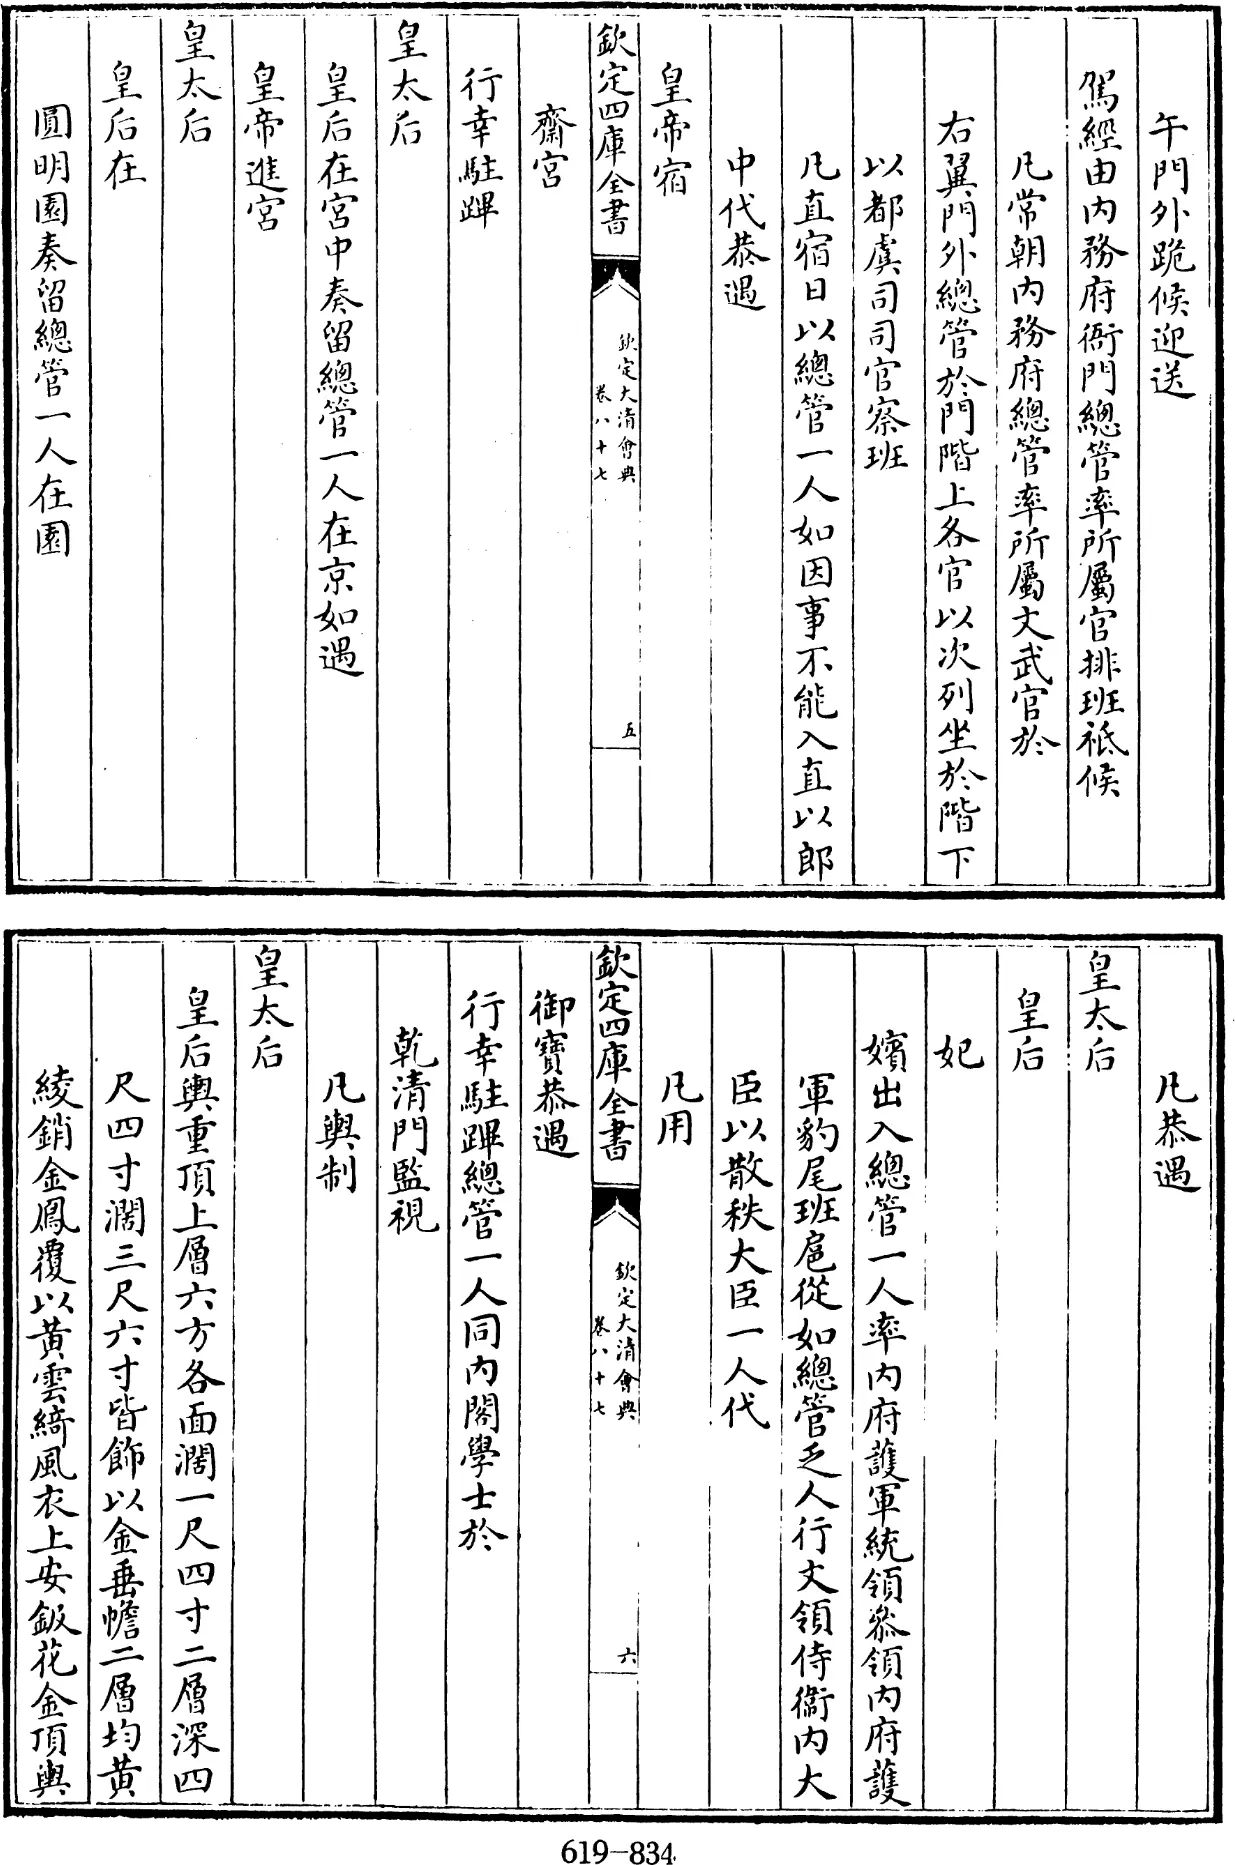 午門外跪候迎送
駕經由內務府衙門總管率所屬官排班祗候
凡常朝內務府總管率所屬文武官於
右翼門外總管於門階上各官以次列坐於階下
以都虞司司官察班
凡直宿日以總管一人如因事不能入直以郎
中代恭遇
皇帝宿
欽定四庫全書
欽定大清會典
卷八十七
五
齋宮
行幸駐蹕
皇太后
皇后在宮中奏留總管一人在京如遇
皇帝進宮
皇太后
皇后在
圓明園奏留總管一人在園
凡恭遇
皇太后
皇后
妃
嬪出入總管一人率內府護軍統領叅領內府護
軍豹尾班扈從如總管乏人行文領侍衛內大
臣以散秩大臣一人代
凡用
欽定四庫全書
欽定大清會典
卷八十七
六
御寶恭遇
行幸駐蹕總管一人同內閣學士於
乾清門監視
凡輿制
皇太后
皇后輿重頂上層六方各面濶一尺四寸二層深四
尺四寸濶三尺六寸皆飾以金垂幨二層均黃
綾銷金鳳覆以黃雲綺風衣上安鈒花金頂輿
619-834